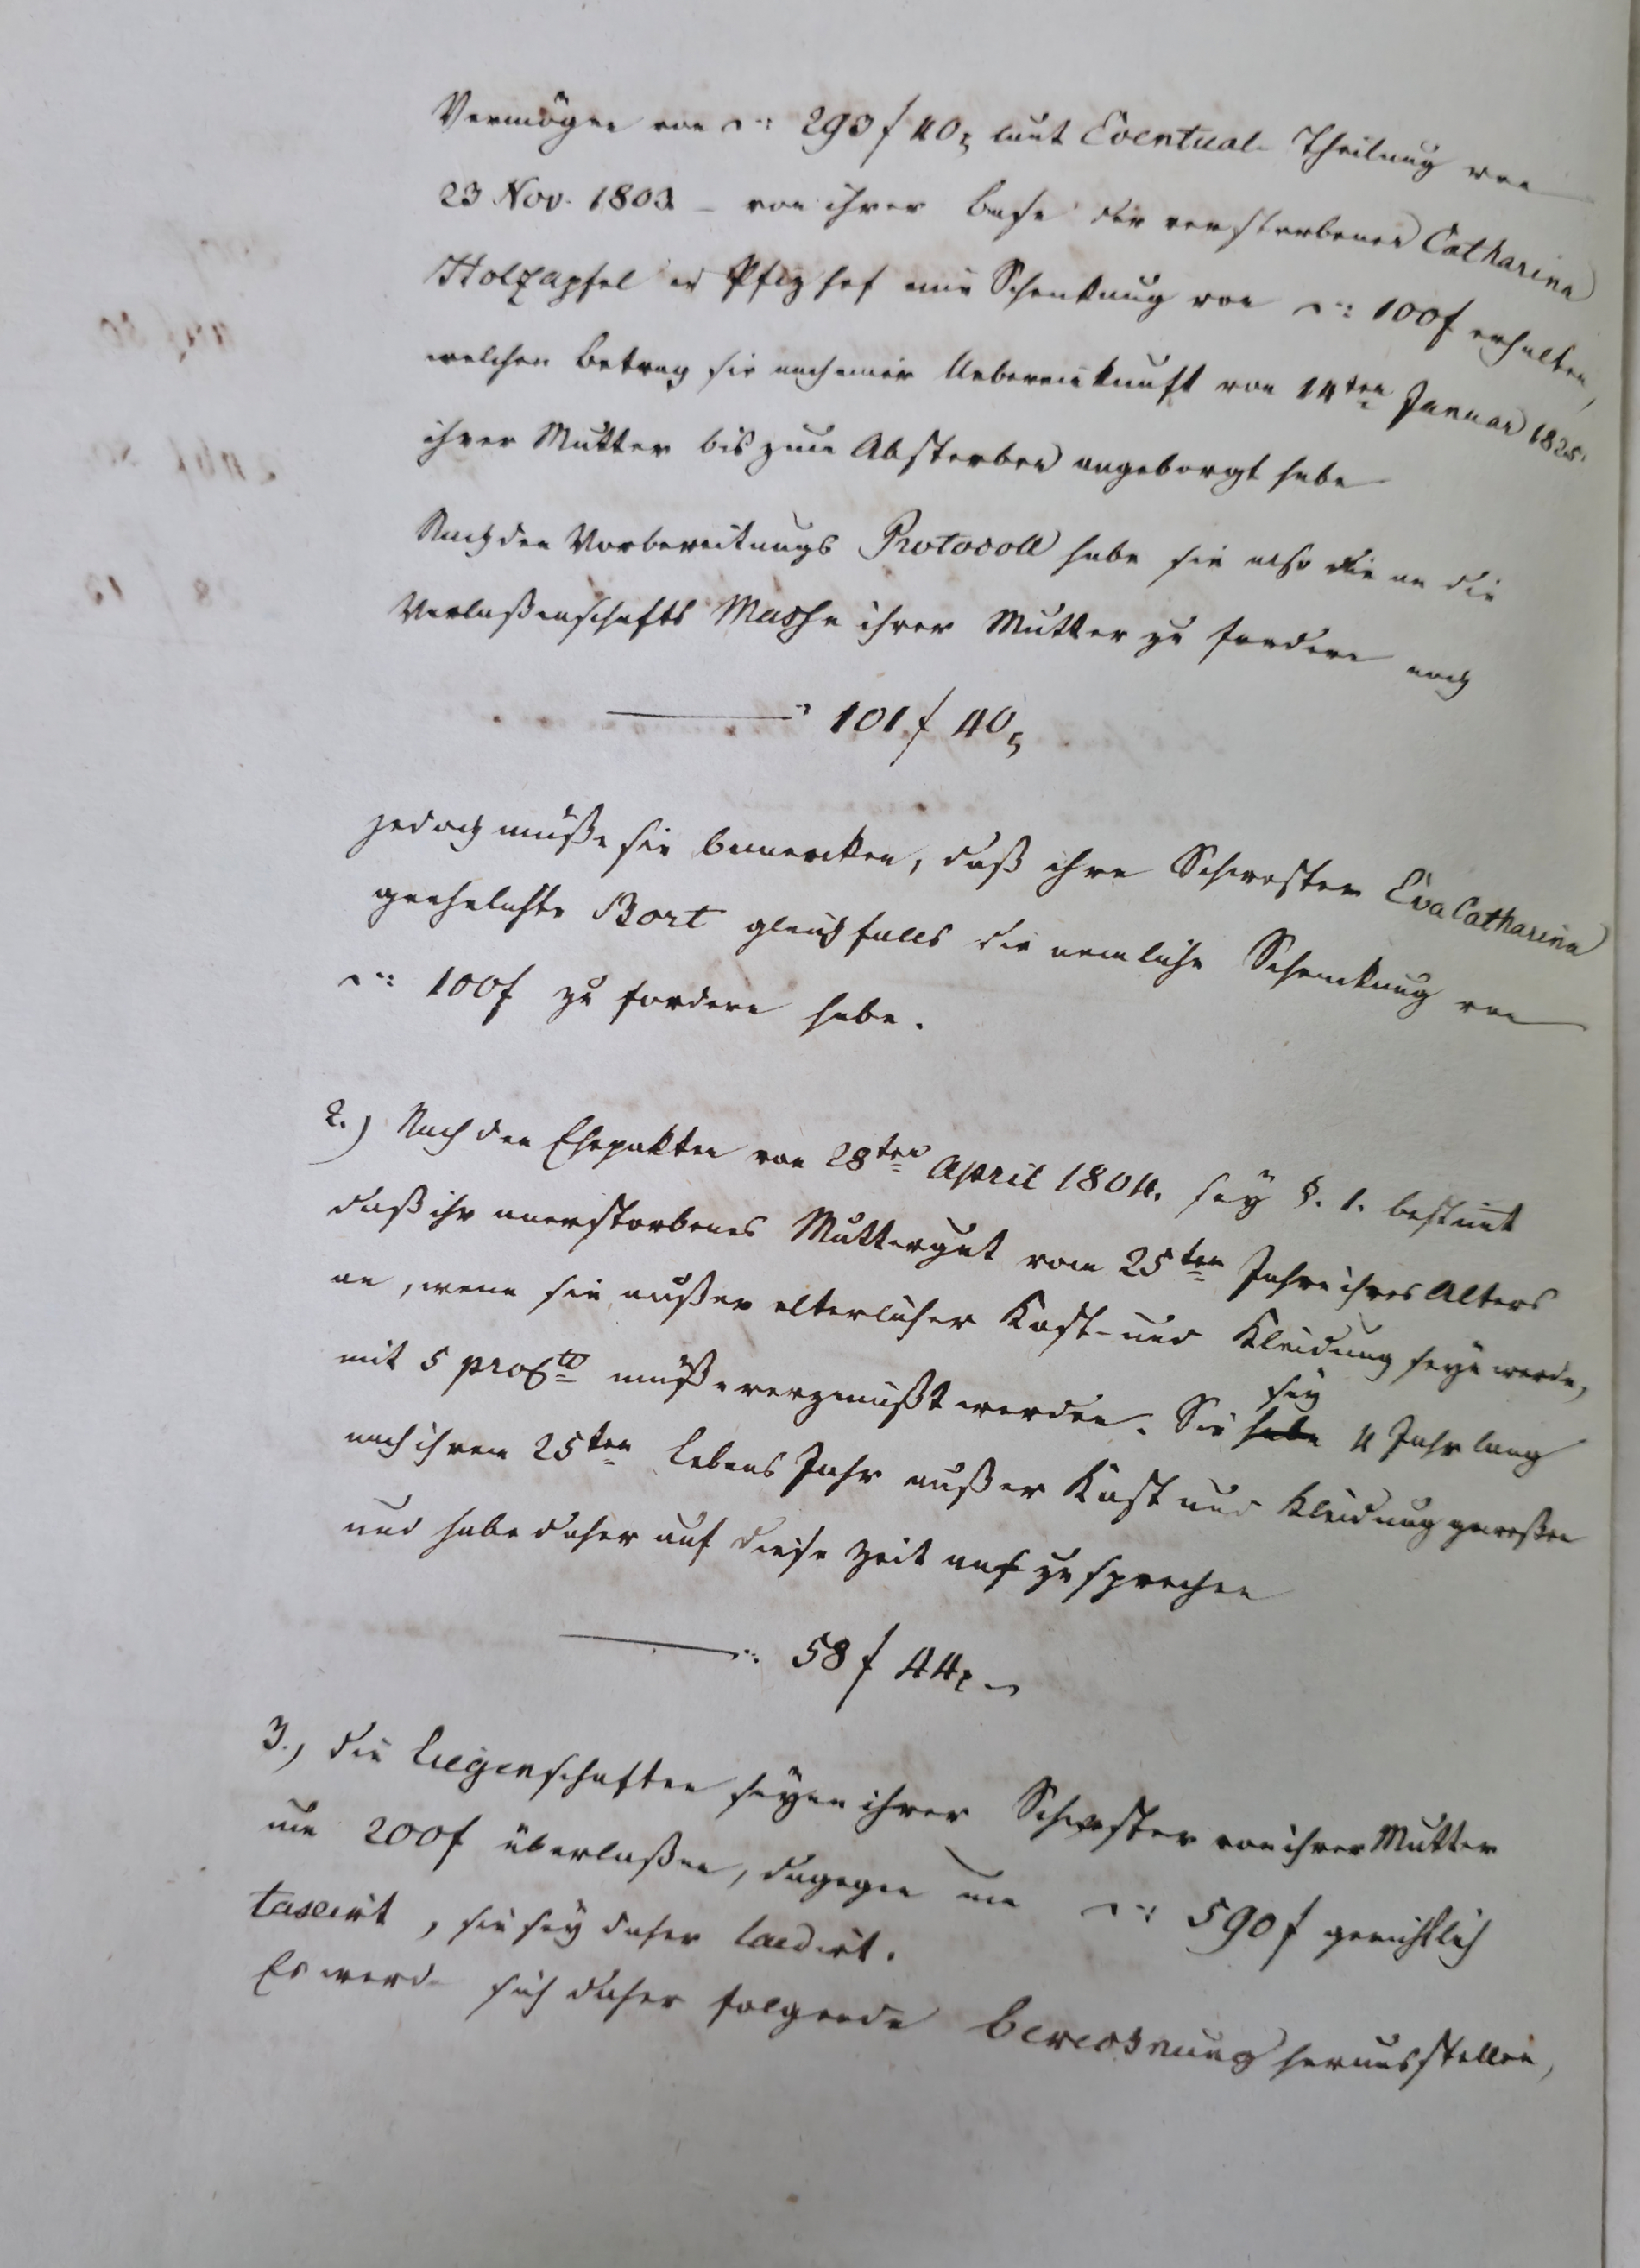 Vermögen von -:: 293 f 40 x laut Eventual-Theilung vom
23 Nov. 1803. - von ihrer Base der verstorbenen Catharina
Holzapfel in Pfizhof eine Schenkung von -:: 100 f erhalten,
welchen Betrag sie nach einer Uebereinkunft vom 14ten Januar 1825.
ihrer Mutter bis zum Absterben angeborgt habe
Nach dem Vorbereitungs Protocoll habe sie also an die
Verlaßenschafts Masse ihrer Mutter zu fordern noch
101 f 40 x
jedoch müße sie bemerken, daß ihre Schwester Eva Catharina
geehelichte Bort gleichfalls die nemliche Schenkung von
-:: 100 f zu fordern habe.
2.) Nach den Ehepakten vom 28ten April 1804. sey §. 1. bestimt
daß ihr anerstorbenes Muttergut vom 25ten Jahre ihres Alters
an, wenn sie außer elterlicher Kost- und Kleidung seyn werde,
mit 5 pro Cto müße verzinßt werden. Sie sey 4 Jahr lang
nach ihrem 25ten Lebens Jahr außer Kost und Kleidung geweßen
und habe daher auf diese Zeit anzusprechen
58 f 44 x
3., die Liegenschaften seyen ihrer Schwester von ihrer Mutter
um 200 f überlaßen, dagegen um -:: 590 f gerichtlich
taxirt, sie sey daher laedirt.
Es werde sich daher folgende Berechnung herausstellen,